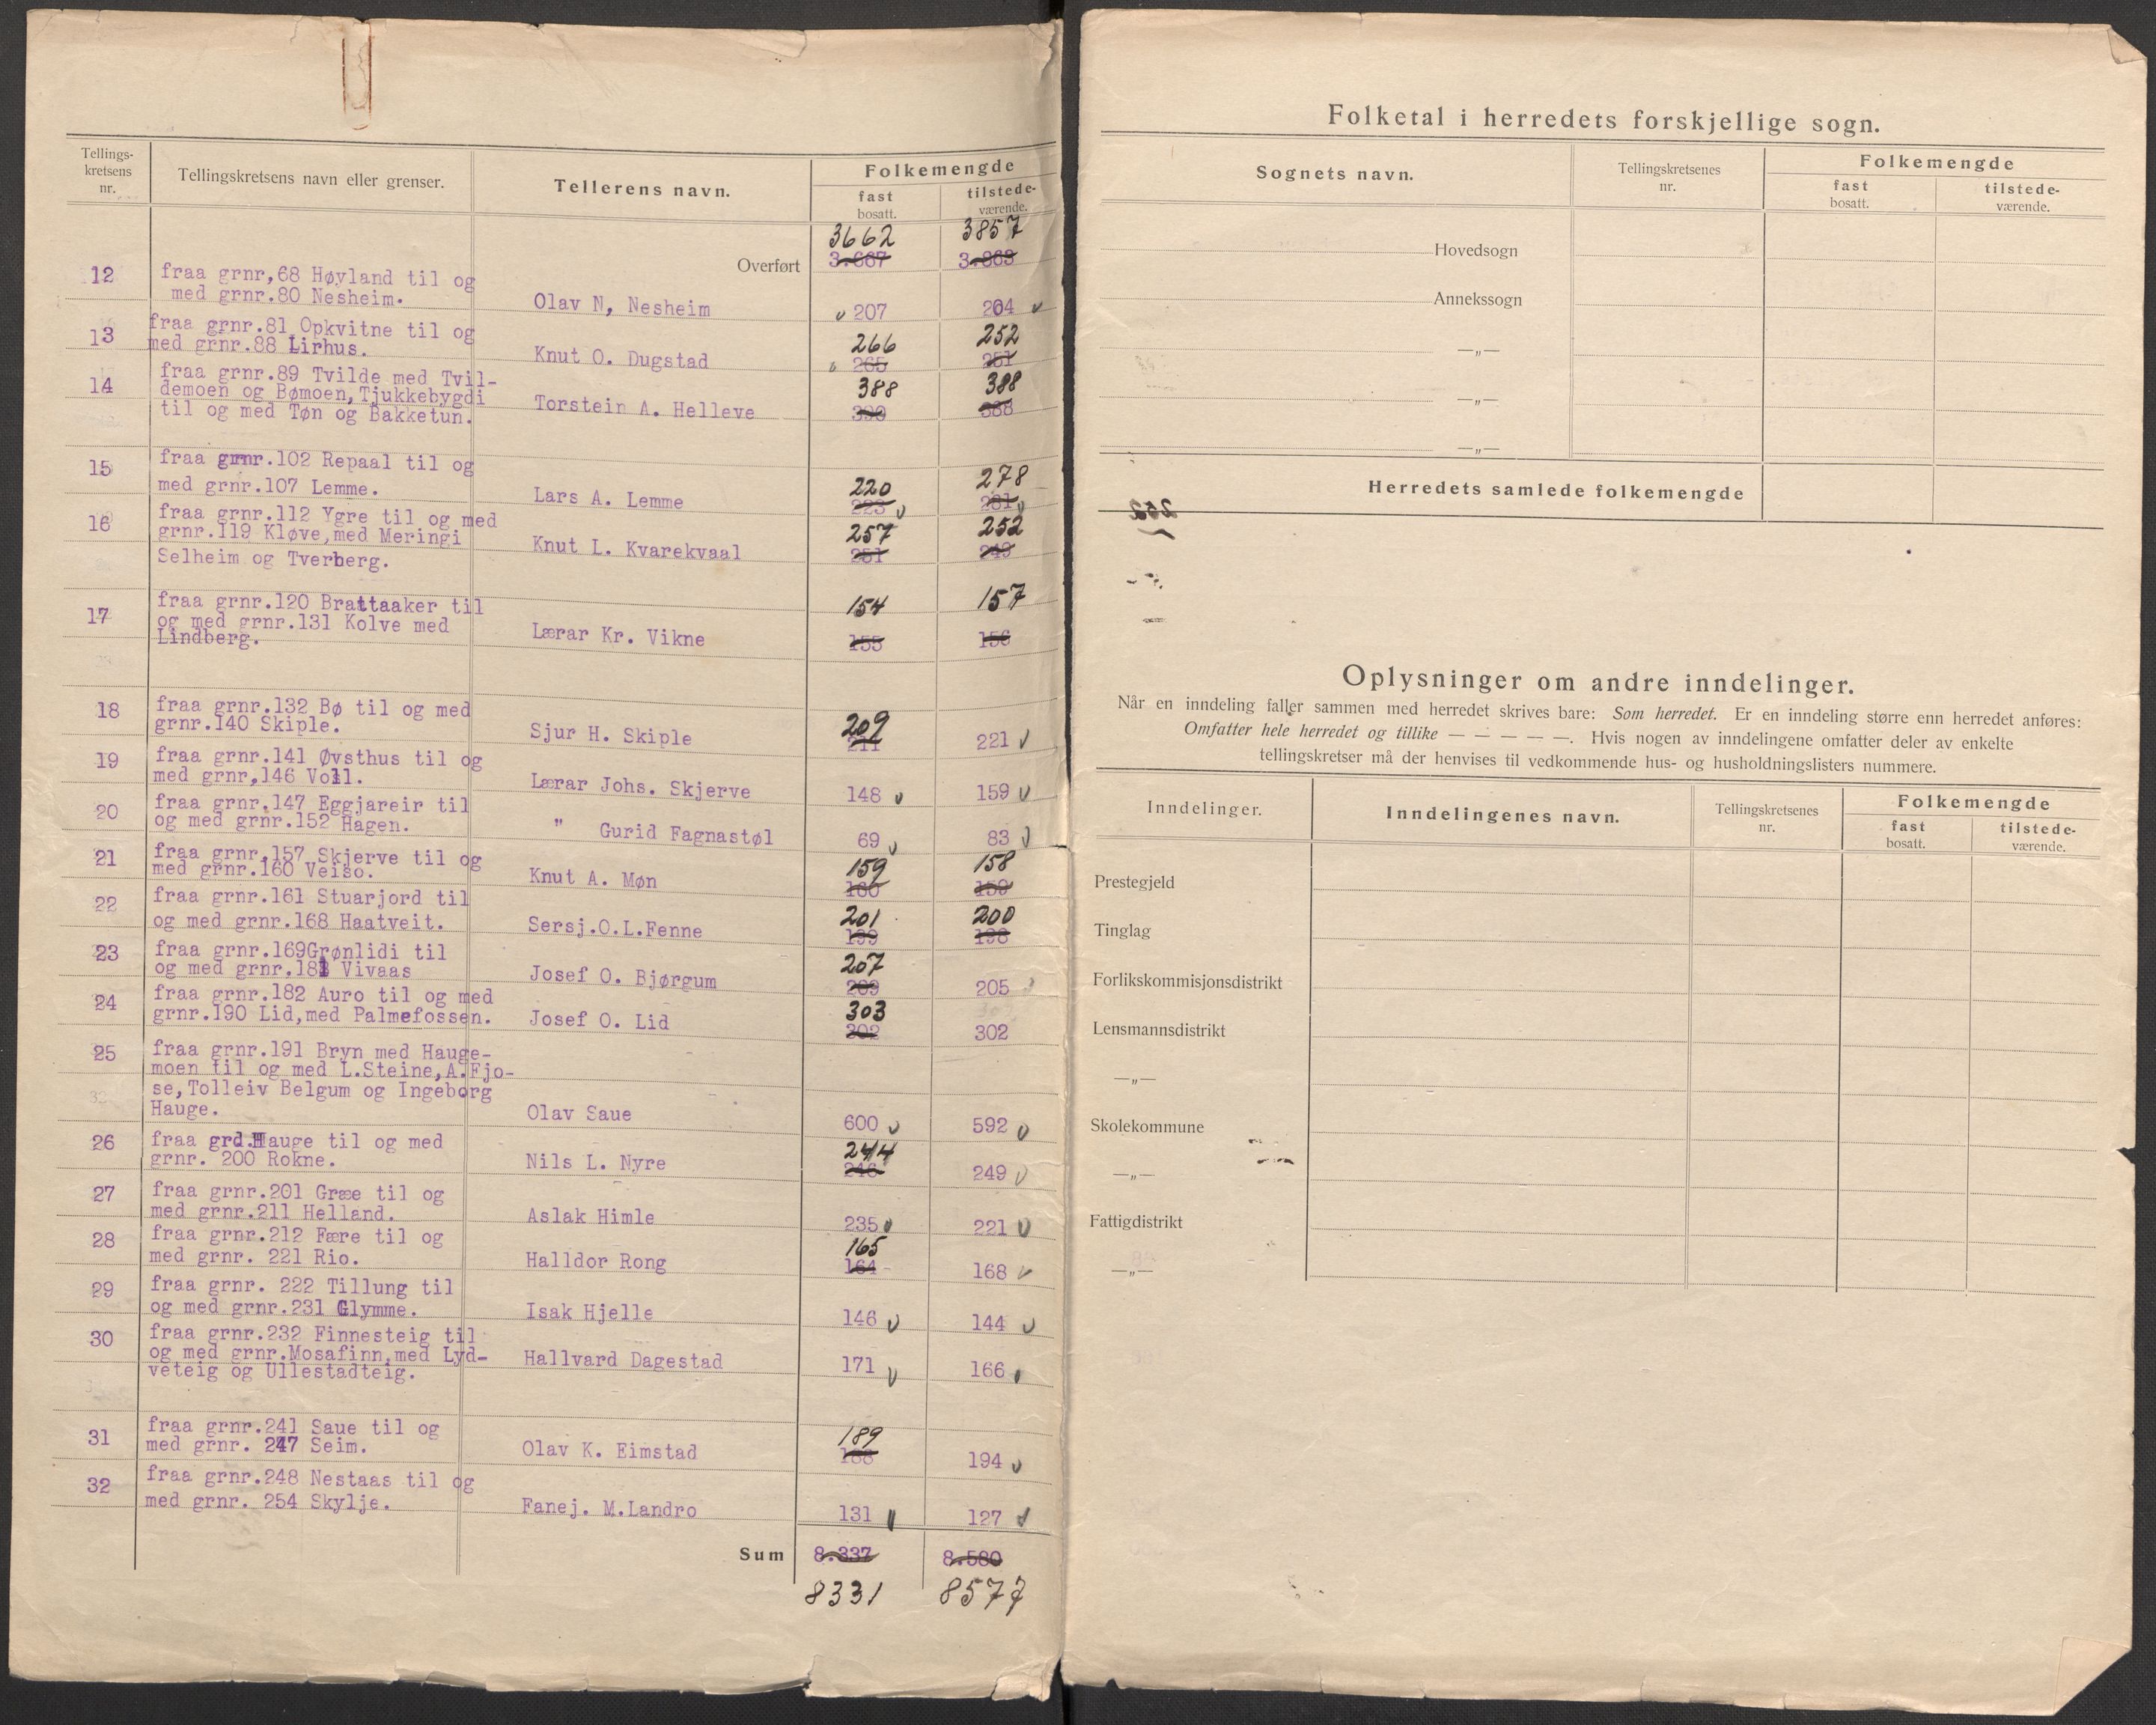 Tellings-
kretsens
nr.
Tellingskretsens navn eller grenser.
Tellerens navn.
Folkemengde
fast
bosatt.
tilstede-
værende.
3662 3857
Overført 3.667 3.863
12 fraa grnr,68 Høyland til og
med grnr.80 Nesheim. Olav N, Nesheim 207 204
13 fraa grnr.81 Opkvitne til og 266 252
med grnr.88 Lirhus. Knut O. Dugstad 265 251
14 fraa grnr.89 Tvilde med Tvil- 388 388
demoen og Bømoen,Tjukkebygdi
til og med Tøn og Bakketun. Torstein A. Helleve 390 388
15 fraa grnr.102 Repaal til og 220 278
med grnr.107 Lemme. Lars A. Lemme 223 281
16 fraa grnr.112 Ygre til og med 257 252
grnr.119 Kløve,med Meringi Knut L. Kvarekvaal 251 249
Selheim og Tverberg.
17 fraa grnr.120 Brattaaker til 154 157
og med grnr.131 Kolve med
Lindberg. Lærar Kr. Vikne 155 156
18 fraa grnr.132 Bø til og med 209
grnr.140 Skiple. Sjur H. Skiple 211 221
19 fraa grnr.141 Øvsthus til og
med grnr,146 Voll. Lærar Johs. Skjerve 148 159
20 fraa grnr.147 Eggjareir til
og med grnr.152 Hagen. " Gurid Fagnastøl 69 83
21 fraa grnr.157 Skjerve til og 159 158
med grnr.160 Veiso. Knut A. Møn 160 159
22 fraa grnr.161 Stuarjord til 201 200
og med grnr.168 Haatveit. Sersj.O.L.Fenne 199 198
23 fraa grnr.169Grønlidi til 207
og med grnr.181 Vivaas Josef O. Bjørgum 209 205
24 fraa grnr.182 Auro til og med 303
grnr.190 Lid,med Palmefossen. Josef O. Lid 302 302
25 fraa grnr.191 Bryn med Hauge-
moen til og med L.Steine,A.Fjo-
se,Tolleiv Belgum og Ingeborg
Hauge. Olav Saue 600 592
26 fraa grd.Hauge til og med 244
grnr. 200 Rokne. Nils L. Nyre 246 249
27 fraa grnr.201 Græe til og
med grnr.211 Helland. Aslak Himle 235 221
28 fraa grnr.212 Fære til og 165
med grnr. 221 Rio. Halldor Rong 164 168
29 fraa grnr. 222 Tillung til
og med grnr.231 Glymme. Isak Hjelle 146 144
30 fraa grnr.232 Finnesteig til
og med grnr.Mosafinn,med Lyd- Hallvard Dagestad 171 166
veteig og Ullestadteig.
31 fraa grnr.241 Saue til og 189
med grnr. 247 Seim. Olav K. Eimstad 188 194
32 fraa grnr.248 Nestaas til og
med grnr. 254 Skylje. Fanej. M.Landro 131 127
Sum 8.337 8.580
8331 8577
Folketal i herredets forskjellige sogn.
Sognets navn.
Tellingskretsenes
nr.
Folkemengde
fast
bosatt.
tilstede-
værende.
Hovedsogn
Annekssogn
—„—
—„—
—„—
Herredets samlede folkemengde
Oplysninger om andre inndelinger.
Når en inndeling faller sammen med herredet skrives bare: Som herredet. Er en inndeling større enn herredet anføres:
Omfatter hele herredet og tillike — — — — —. Hvis nogen av inndelingene omfatter deler av enkelte
tellingskretser må der henvises til vedkommende hus- og husholdningslisters nummere.
Inndelinger.
Inndelingenes navn.
Tellingskretsenes
nr.
Folkemengde
fast
bosatt.
tilstede-
værende.
Prestegjeld
Tinglag
Forlikskommisjonsdistrikt
Lensmannsdistrikt
—„—
Skolekommune
—„—
Fattigdistrikt
—„—